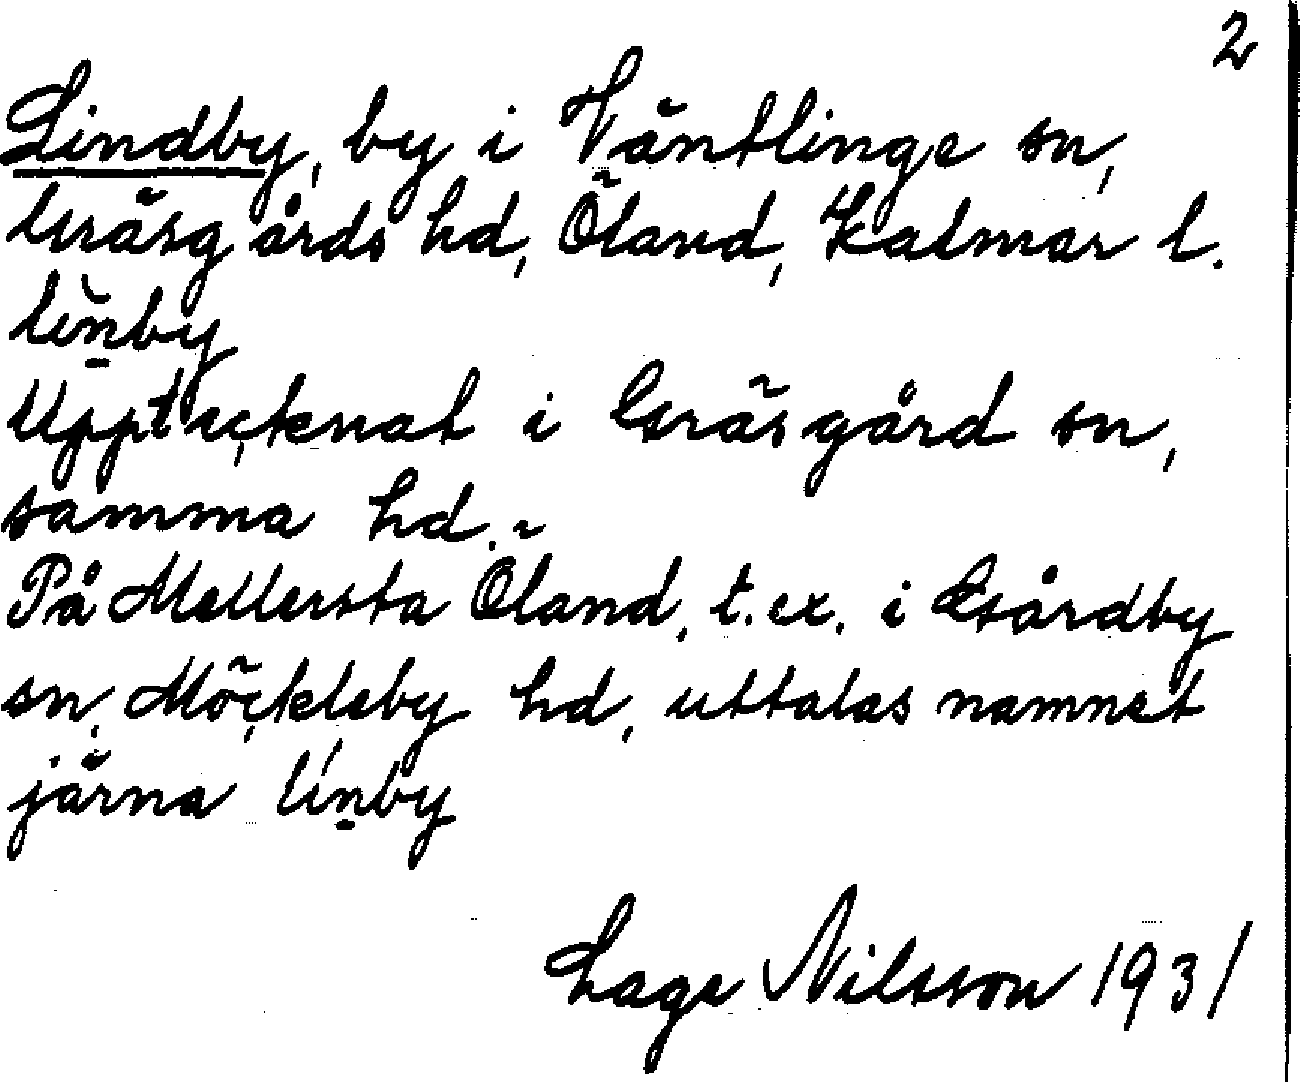 2
Lindby, by i Väntlinge sn,
Gräsgårds hd, Öland, Kalmar l.
lìn̠by
Upptecknat i Gräsgård sn,
samma hd.
På Mellersta Öland, t.ex. i Gårdby
sn, Möckleby hd, uttalas namnet
järna lín̠by
Lage Nilsson 1931